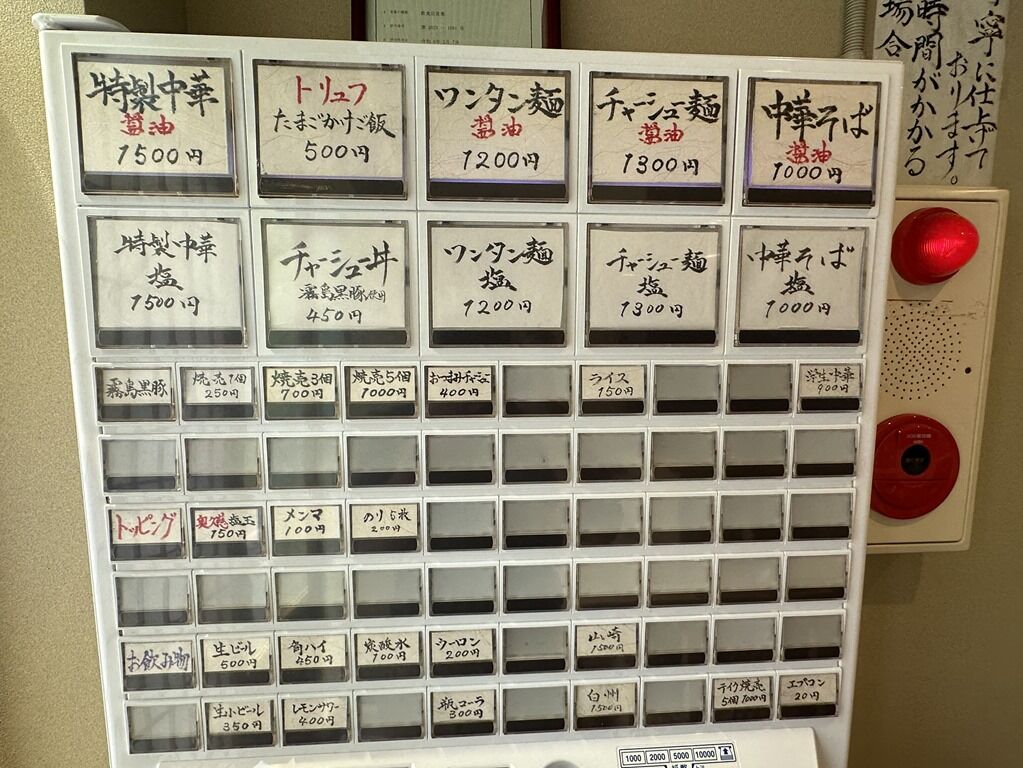 特製中華
醤油
1500円
トリュフ
たまごかけご飯
500円
ワンタン麺
醤油
1200円
チャーシュー麺
醤油
1300円
中華そば
醤油
1000円
寧に仕上げて
おります。
時間がかかる
場合
特製中華
塩
1500円
チャーシュー丼
霧島黒豚使用
450円
ワンタン麺
塩
1200円
チャーシュー麺
塩
1300円
中華そば
塩
1000円
霧島黒豚
焼売1個
250円
焼売3個
700円
焼売5個
1000円
おつまみチャーシュー
400円
ライス
150円
中華
900円
トッピング
味玉
150円
メンマ
100円
のり5枚
200円
お飲み物
生ビール
500円
角ハイ
450円
炭酸水
100円
ウーロン
200円
山崎
1500円
生小ビール
350円
レモンサワー
400円
瓶コーラ
300円
白州
1500円
テイク焼売
5個1000円
エプロン
20円
1000 2000 5000 10000